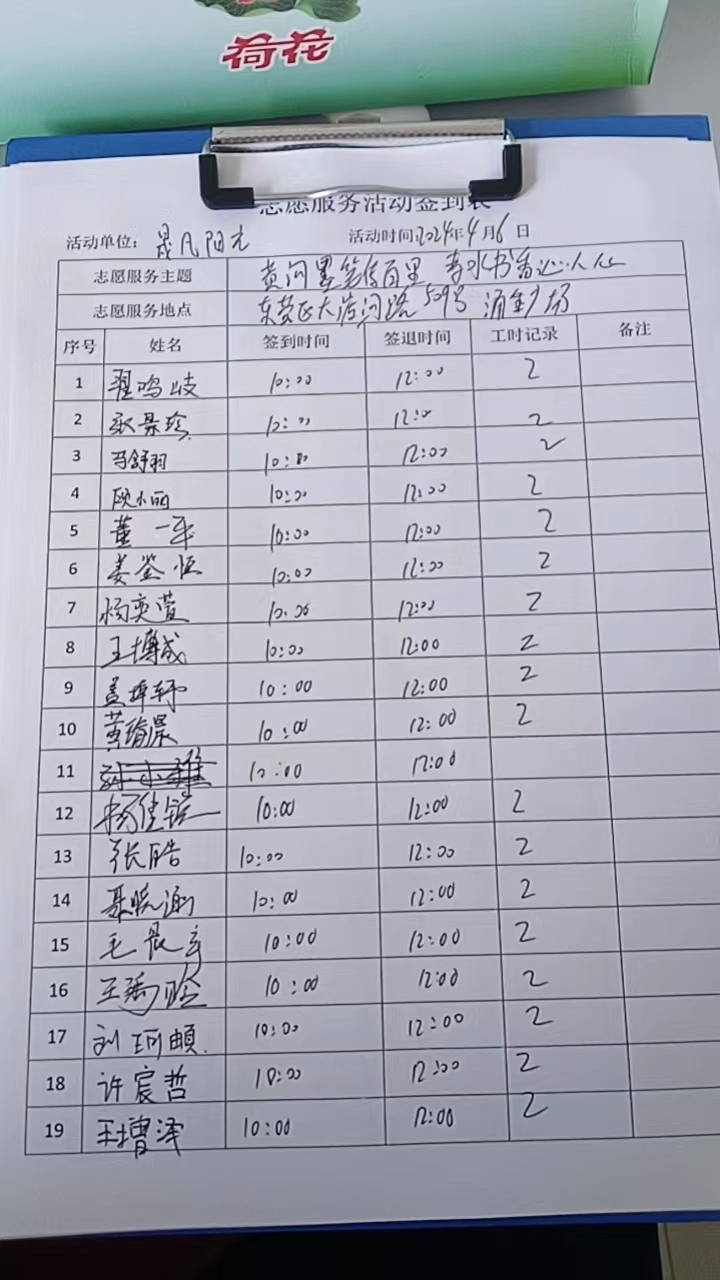 荷花
志愿服务活动签到表
活动单位：晟凡阳光 活动时间：2024年4月6日
志愿服务主题 黄河墨笔传百里 春水书香沁人心
志愿服务地点 东营区大渡河路509号 涌金广场
序号 姓名 签到时间 签退时间 工时记录 备注
1 翟鸣岐 10:00 12:00 2
2 耿景珍 10:00 12:00 2
3 马舒羽 10:00 12:00 2
4 顾小丽 10:00 12:00 2
5 董一平 10:00 12:00 2
6 姜鉴恒 10:00 12:00 2
7 杨奕萱 10:00 12:00 2
8 王博成 10:00 12:00 2
9 10:00 12:00 2
10 黄 晨 10:00 12:00 2
11 10:00 12:00
12 杨佳 10:00 12:00 2
13 张皓 10:00 12:00 2
14 聂晓涵 10:00 12:00 2
15 毛 10:00 12:00 2
16 王 10:00 12:00 2
17 刘珂 10:00 12:00 2
18 许宸哲 10:00 12:00 2
19 王增泽 10:00 12:00 2